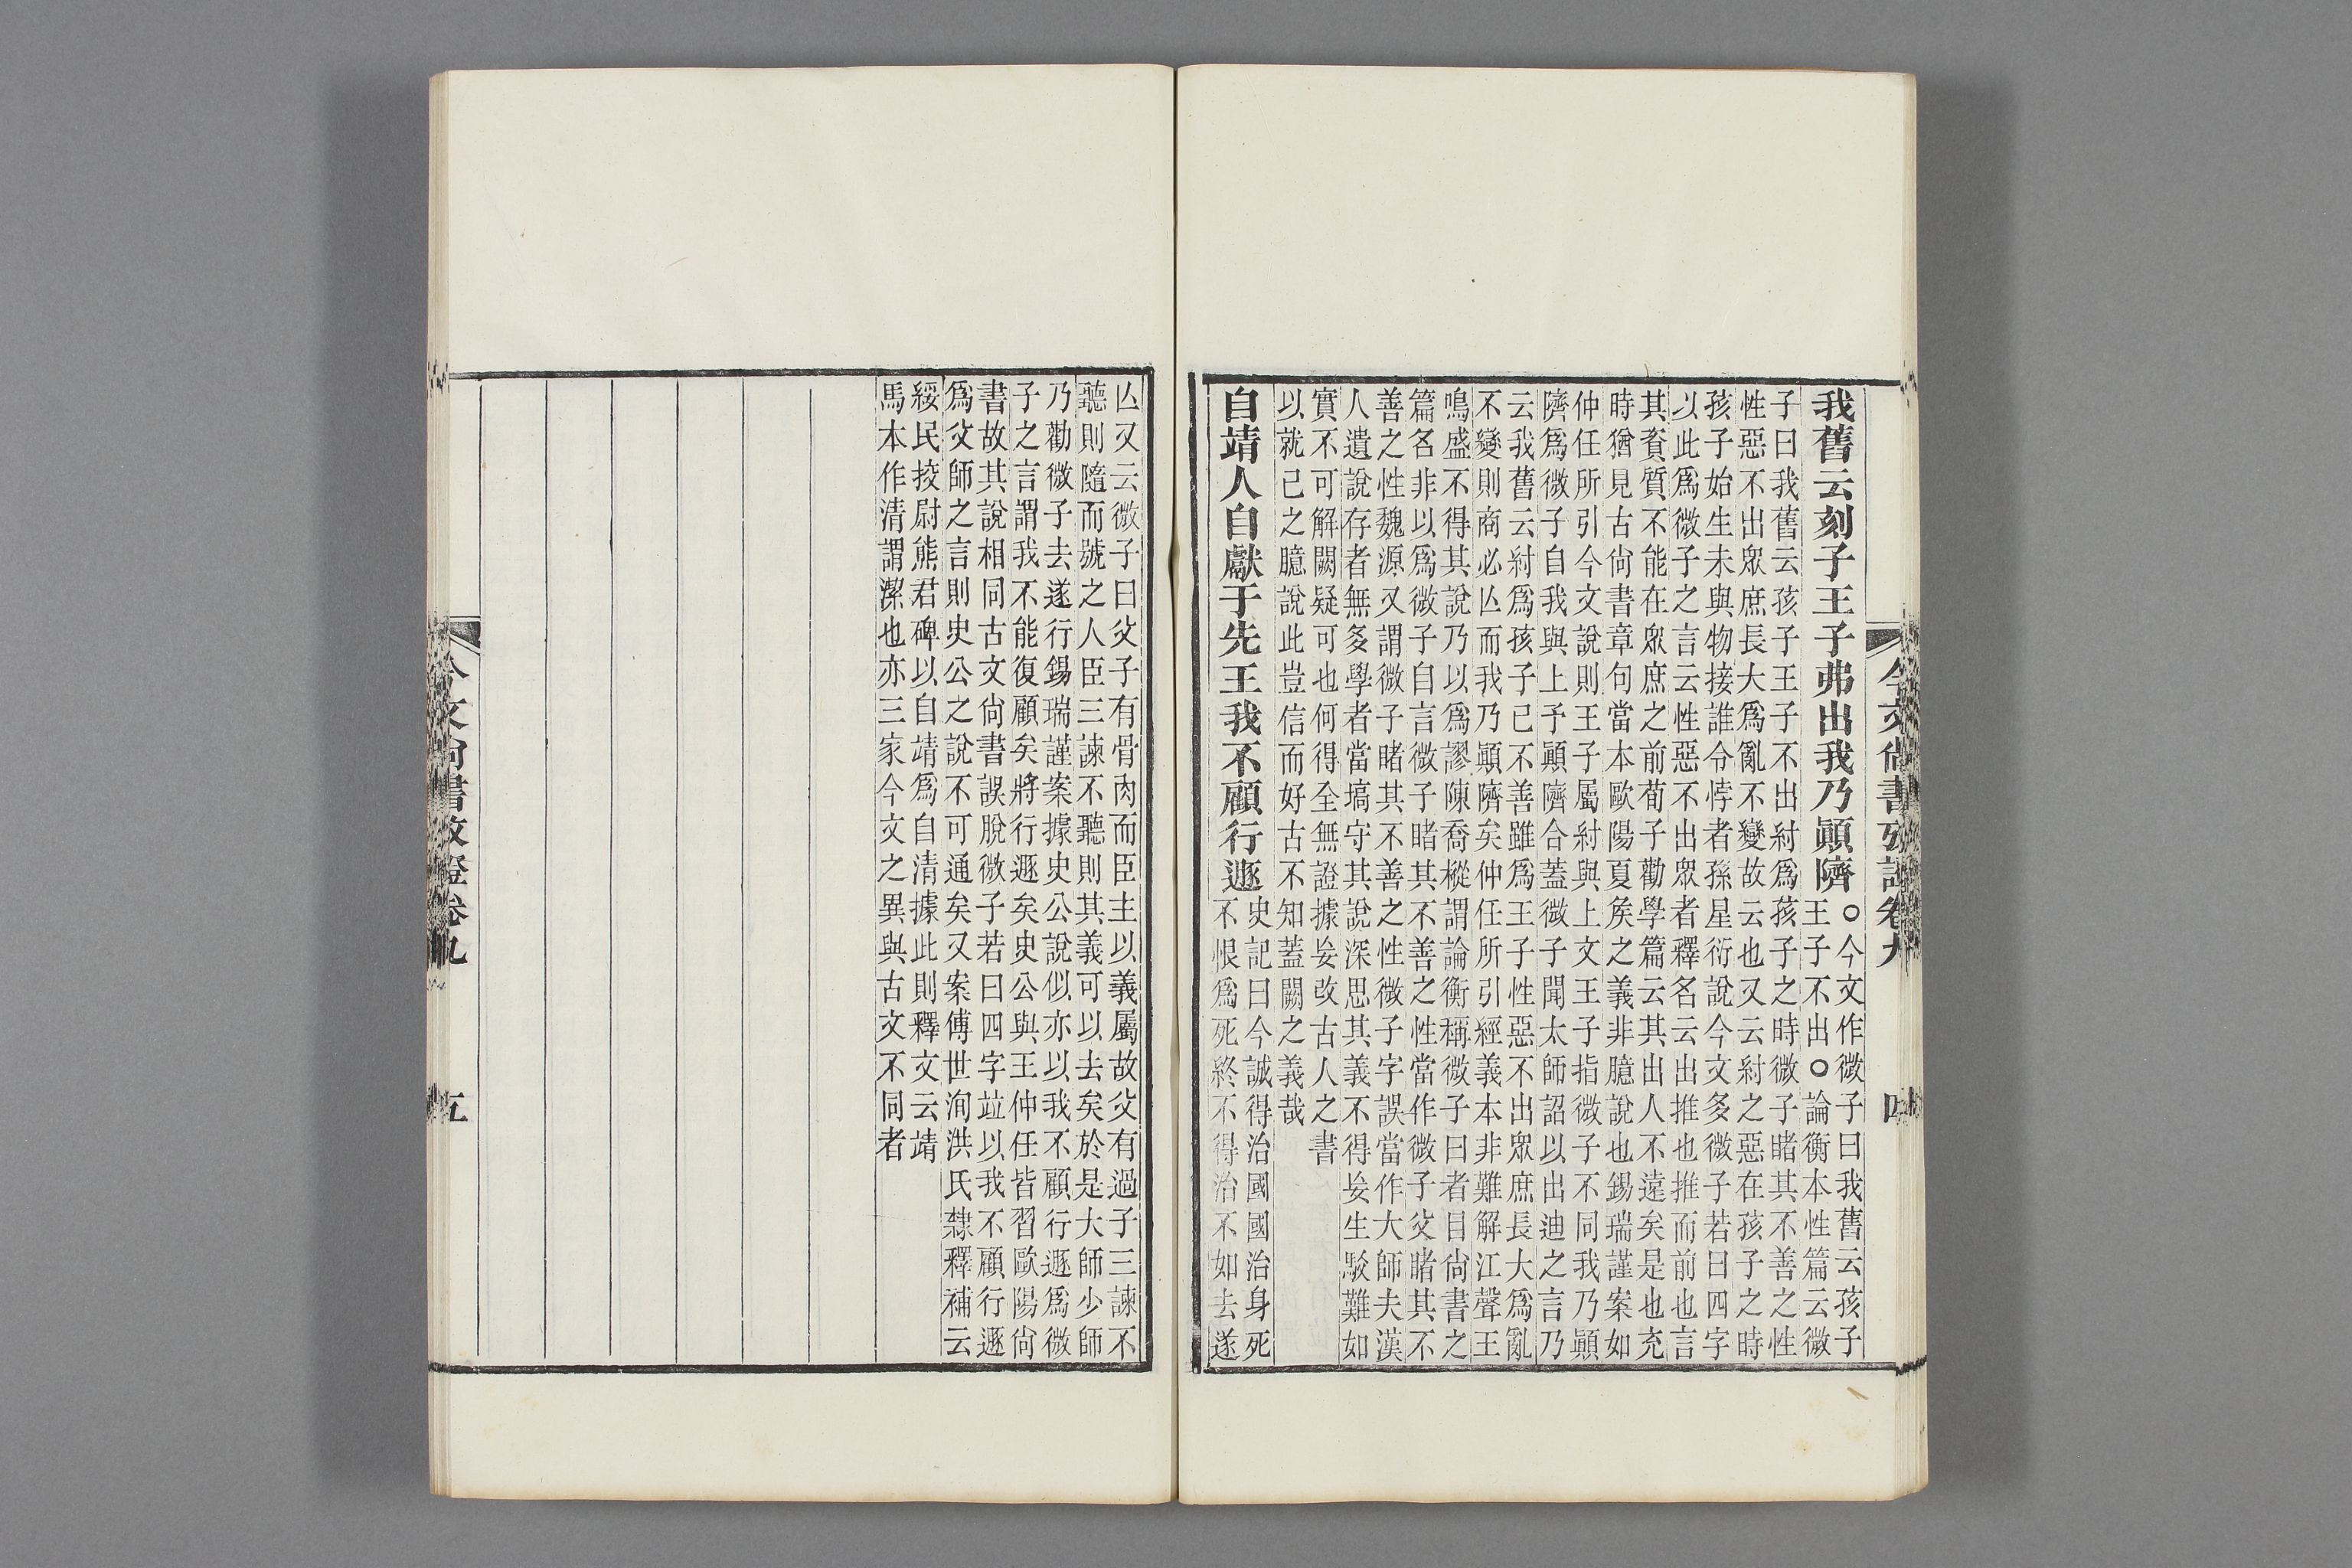 今文尚書攷證卷九
四
我舊云刻子王子弗出我乃顚隮○今文作微子曰我舊云孩子
王子不出○論衡本性篇云微
子曰我舊云孩子王子不出紂爲孩子之時微子睹其不善之性
性惡不出眾庶長大爲亂不變故云也又云紂之惡在孩子之時
孩子始生未與物接誰令悖者孫星衍說今文多微子若曰四字
以此爲微子之言云性惡不出眾者釋名云出推也推而前也言
其資質不能在眾庶之前荀子勸學篇云其出人不遠矣是也充
時猶見古尙書章句當本歐陽夏矦之義非臆說也錫瑞謹案如
仲任所引今文說則王子屬紂與上文王子指微子不同我乃顚
隮爲微子自我與上予顚隮合蓋微子聞太師詔以出迪之言乃
云我舊云紂爲孩子已不善雖爲王子性惡不出眾庶長大爲亂
不變則商必亾而我乃顚隮矣仲任所引經義本非難解江聲王
鳴盛不得其說乃以爲謬陳喬樅謂論衡稱微子曰者目尙書之
篇名非以爲微子自言微子睹其不善之性當作微子父睹其不
善之性魏源又謂微子睹其不善之性微子字誤當作大師夫漢
人遺說存者無多學者當墧守其說深思其義不得妄生駁難如
實不可解闕疑可也何得全無證據妄改古人之書
以就己之臆說此豈信而好古不知蓋闕之義哉
自靖人自獻于先王我不顧行遯史記曰今誠得治國國治身死
不恨爲死終不得治不如去遂
亾又云微子曰父子有骨肉而臣主以義屬故父有過子三諫不
聽則隨而號之人臣三諫不聽則其義可以去矣於是大師少師
乃勸微子去遂行錫瑞謹案據史公說似亦以我不顧行遯爲微
子之言謂我不能復顧矣將行遯矣史公與王仲任皆習歐陽尙
書故其說相同古文尙書誤脫微子若曰四字竝以我不顧行遯
爲父師之言則史公之說不可通矣又案傅世洵洪氏隸釋補云
綏民挍尉熊君碑以自靖爲自清據此則釋文云靖
馬本作清謂潔也亦三家今文之異與古文不同者
今文尚書攷證卷九
五